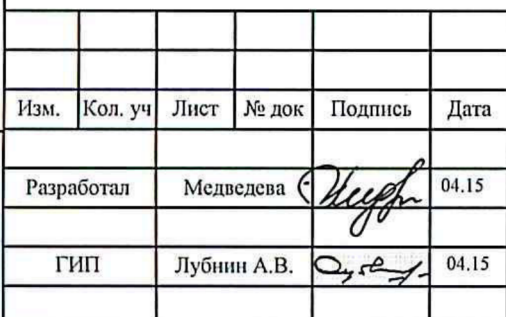 Изм. Кол. уч Лист № док Подпись Дата
Разработал Медведева 04.15
ГИП Лубнин А.В. 04.15